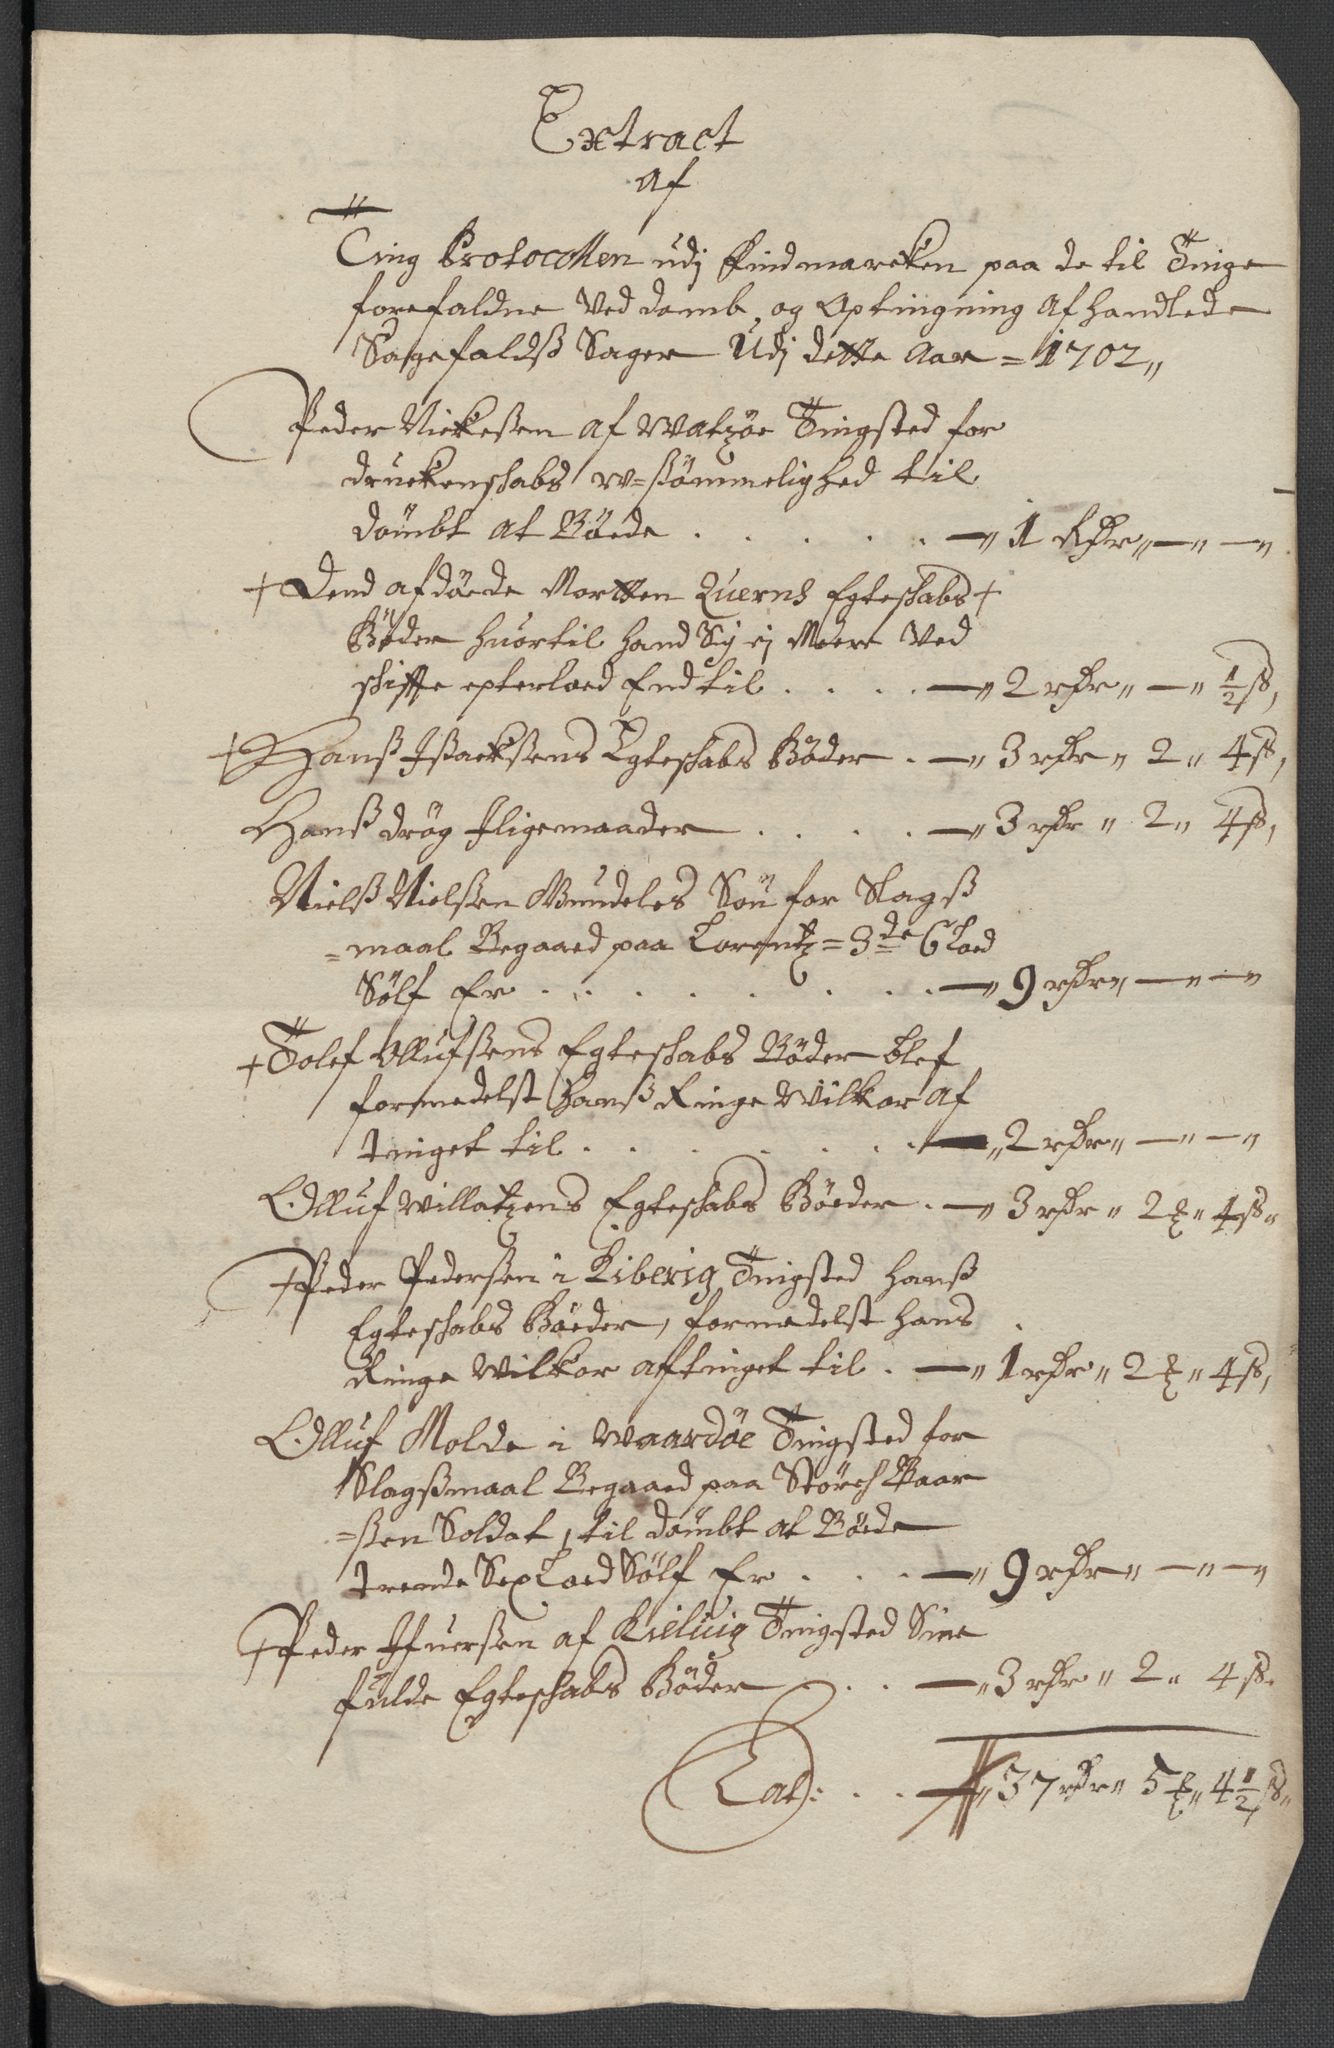 Extract
af
Ting Protocollen udj Findmarcken paa de til Tinge
forefaldne Ved domb, og Optingning Afhandlede
Sagefaldß Sager Udj dette Aar = 1702,,
Peder Nickeßen af Watzøe Tingsted for
druckenskabs w=sømmelighed til
dømbt at Bøede . . . . . —" 1 Rdr" —" —"
+ Dend afdøede Mortten Querns Egteskabs +
Bøder huortil hand Sig ej Meere Ved
skiffte epterloed End til . . . . —" 2 rdr" —" ½ ß,
+ Hanß Ißackßens Egteskabs Bøder . —" 3 rdr" 2" 4 ß,
Hanß drøg Iligemaader . . . . —" 3 rdr" 2" 4 ß,
Nielß Nielßen Mundeles Søn for Slagß
=maal Begaaed paa Lorentz = 3de 6 Loed
Sølf Er . . . . . . . . —" 9 rdr" —" —"
+ Tolef Ollufßens Egteskabs Bøder blef
formedelst Hanß Ringe Wilkor af
tinget til . . . . . . —" 2 rdr" —" —"
Olluf Willatzens Egteskabs Bøeder . —" 3 rdr" 2 ℥" 4 ß"
+ Peder Pederßen i Kiberig Tingsted Hanß
Egteskabs Bøeder, formedelst hans
Ringe Wilkor aftinget til . —" 1 rdr" 2 ℥" 4 ß,
Olluf Molde i Waardøe Tingsted for
Slagßmaal Begaaed paa Størck Baar
=ßen Soldat, til dømbt at Bøede
trende Sex Loed Sølf Er . . . —" 9 rdr" —" —"
+ Peder Ifuerßen af Kielwig Tingsted Sine
fulde Egteskabs Bøder . . —" 3 rdr" 2" 4 ß.
Lat: . . —" 37 rdr" 5 ℥" 4½ ß"